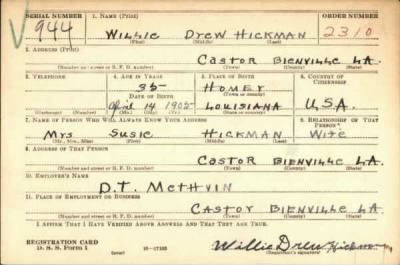 SERIAL NUMBER 1. NAME (Print) ORDER NUMBER
V 944 WILLIE DREW HICKMAN 2310
(First) (Middle) (Last)
2. ADDRESS (Print)
CASTOR BIENVILLE LA.
(Number and street or R. F. D. number) (Town) (County) (State)
3. TELEPHONE 4. AGE IN YEARS 5. PLACE OF BIRTH 6. COUNTRY OF CITIZENSHIP
35 HOMEY
DATE OF BIRTH (Town or county)
April 14 1905 LOUISIANA U.S.A.
(Exchange) (Number) (Mo.) (Day) (Yr.) (State or country)
7. NAME OF PERSON WHO WILL ALWAYS KNOW YOUR ADDRESS 8. RELATIONSHIP OF THAT PERSON
MRS SUSIE HICKMAN WIFE
(Mr., Mrs., Miss) (First) (Middle) (Last)
9. ADDRESS OF THAT PERSON
CASTOR BIENVILLE LA.
(Number and street or R. F. D. number) (Town) (County) (State)
10. EMPLOYER'S NAME
D.T. METHVIN
11. PLACE OF EMPLOYMENT OR BUSINESS
CASTOR BIENVILLE LA.
(Number and street or R. F. D. number) (Town) (County) (State)
I AFFIRM THAT I HAVE VERIFIED ABOVE ANSWERS AND THAT THEY ARE TRUE.
REGISTRATION CARD
D. S. S. FORM 1 (over) 16-17105 Willie Drew Hickman
(Registrant's signature)